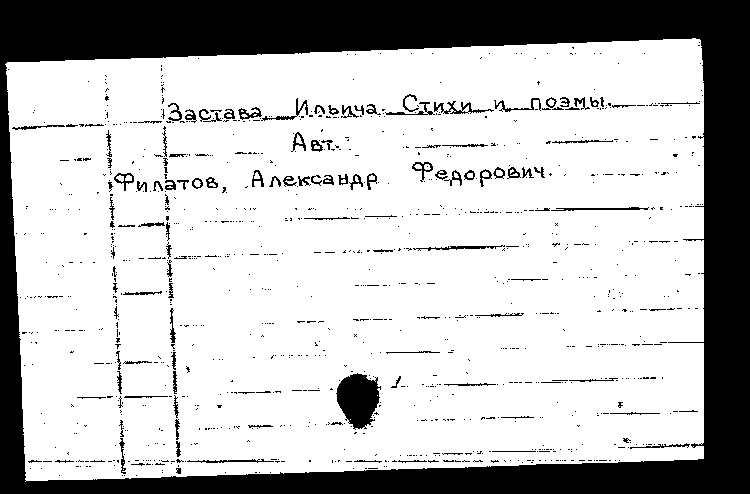 Застава Ильича. Стихи и поэмы.
Авт.
Филатов, Александр Федорович.